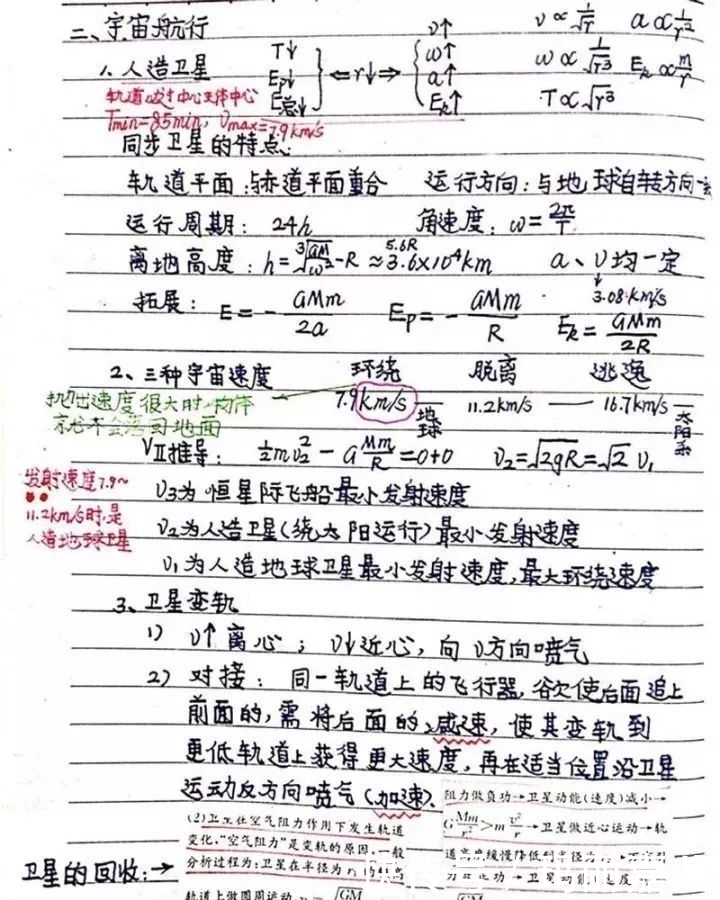 二、宇宙航行
v↑ v∝1/√r a∝1/r²
1. 人造卫星 T↓ ω↑ ω∝1/√r³ Ek∝m/r
Ep↓ ⇐r↓⇒ a↑
轨道 中心 中心 E总↓ Ek↑ T∝√r³
Tmin=85min, Vmax=7.9km/s
同步卫星的特点:
轨道平面:与赤道平面重合 运行方向:与地球自转方向一
运行周期: 24h 角速度: ω=2π/T
离地高度: h=∛(GM/ω²)-R≈3.6×10⁴km 5.6R a、v均一定
3.08km/s
拓展: E=-GMm/2a Ep=-GMm/R Ek=GMm/2R
2、三种宇宙速度 环绕 脱离 逃逸
7.9km/s — 11.2km/s — 16.7km/s —
地球 太阳系
抛出速度很大时,物体
不会落回地面
VⅡ推导: ½mv₂²-GMm/R=0+0 v₂=√2gR=√2 v₁
发射速度7.9~
11.2km/s时,是
人造地球卫星
v₃为恒星际飞船最小发射速度
v₂为人造卫星(绕太阳运行)最小发射速度
v₁为人造地球卫星最小发射速度,最大环绕速度
3、卫星变轨
1) v↑离心; v↓近心,向v方向喷气
2) 对接: 同一轨道上的飞行器,欲使后面追上
前面的,需将后面的减速,使其变轨到
更低轨道上获得更大速度,再在适当位置沿卫星
运动反方向喷气(加速).
卫星的回收:→
(2)卫星在空气阻力作用下发生轨道
变化,“空气阻力”是变轨的原因,一般
分析过程为:卫星在半径为r₁的较高
轨道上做圆周运动
阻力做负功→卫星动能(速度)减小→
GMm/r²>mv²/r→卫星做近心运动→轨
道高度缓慢降低到半径为
力做正功→卫星动能(速度